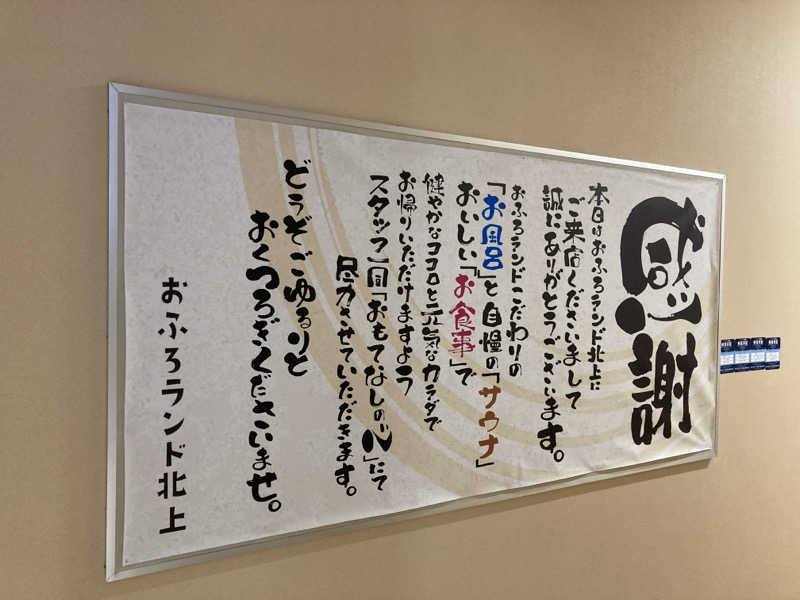 感謝
本日はおふろランド北上に
ご来店くださいまして
誠にありがとうございます。
おふろランドこだわりの
「お風呂」と自慢の「サウナ」
おいしい「お食事」で
健やかなココロと元気なカラダで
お帰りいただけますよう
スタッフ一同「おもてなしの心」にて
尽力させていただきます。
どうぞごゆるりと
おくつろぎくださいませ。
おふろランド北上